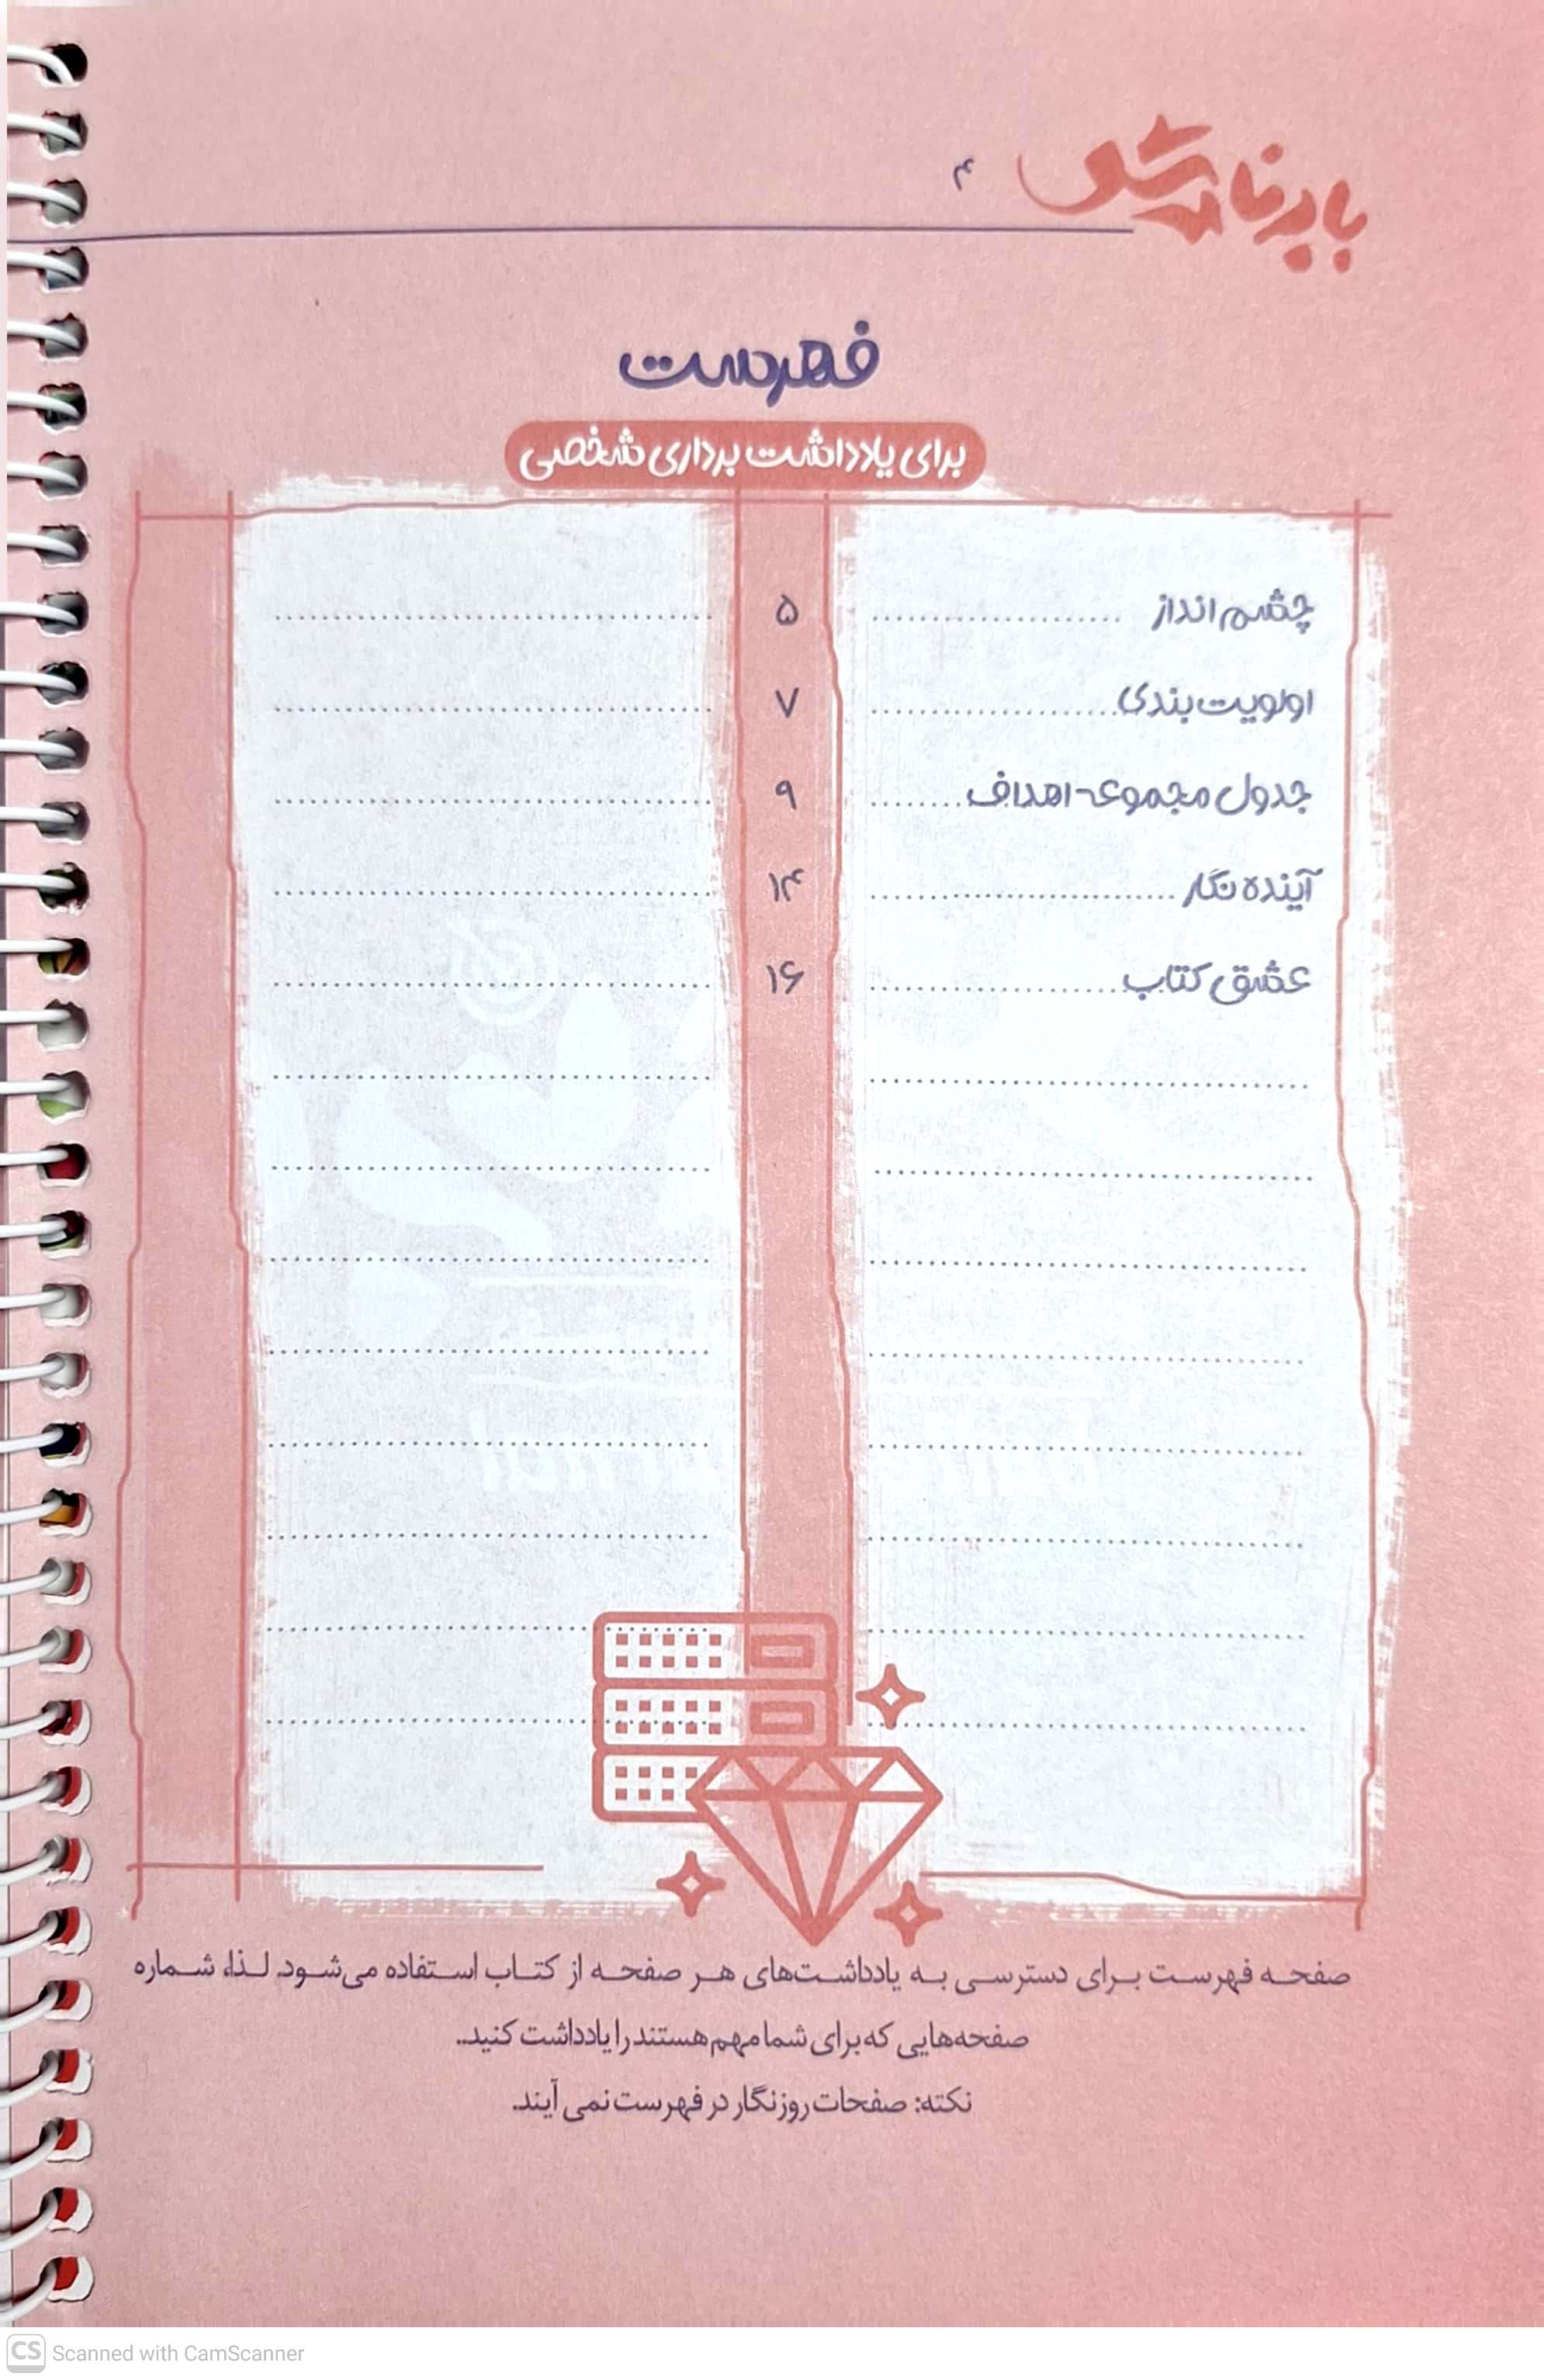 ۴
فهرست
برای یادداشت برداری شخصی
چشم انداز ..................... ۵
اولویت بندی..................... ۷
جدول مجموعه اهداف......... ۹
آینده نگار .......................... ۱۴
عشق کتاب..................... ۱۶
صفحه فهرست برای دسترسی به یادداشت‌های هر صفحه از کتاب استفاده می‌شود. لذا، شماره
صفحه‌هایی که برای شما مهم هستند را یادداشت کنید..
نکته: صفحات روزنگار در فهرست نمی آیند.
CS Scanned with CamScanner